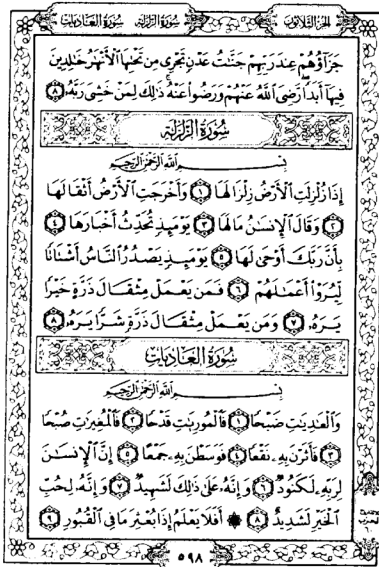 سُورَةُ العَادِيَات سُورَةُ الزَّلْزَلَة الجزء الثلاثون
جَزَآؤُهُمْ عِندَ رَبِّهِمْ جَنَّٰتُ عَدْنٍ تَجْرِى مِن تَحْتِهَا ٱلْأَنْهَٰرُ خَٰلِدِينَ
فِيهَآ أَبَدًا رَّضِىَ ٱللَّهُ عَنْهُمْ وَرَضُوا۟ عَنْهُ ذَٰلِكَ لِمَنْ خَشِىَ رَبَّهُۥ ٨
سُورَةُ الزَّلْزَلَة
بِسْمِ ٱللَّهِ ٱلرَّحْمَٰنِ ٱلرَّحِيمِ
إِذَا زُلْزِلَتِ ٱلْأَرْضُ زِلْزَالَهَا ١ وَأَخْرَجَتِ ٱلْأَرْضُ أَثْقَالَهَا
٢ وَقَالَ ٱلْإِنسَٰنُ مَا لَهَا ٣ يَوْمَئِذٍ تُحَدِّثُ أَخْبَارَهَا ٤
بِأَنَّ رَبَّكَ أَوْحَىٰ لَهَا ٥ يَوْمَئِذٍ يَصْدُرُ ٱلنَّاسُ أَشْتَاتًا
لِّيُرَوْا۟ أَعْمَٰلَهُمْ ٦ فَمَن يَعْمَلْ مِثْقَالَ ذَرَّةٍ خَيْرًا
يَرَهُۥ ٧ وَمَن يَعْمَلْ مِثْقَالَ ذَرَّةٍ شَرًّا يَرَهُۥ ٨
سُورَةُ العَادِيَات
بِسْمِ ٱللَّهِ ٱلرَّحْمَٰنِ ٱلرَّحِيمِ
وَٱلْعَٰدِيَٰتِ ضَبْحًا ١ فَٱلْمُورِيَٰتِ قَدْحًا ٢ فَٱلْمُغِيرَٰتِ صُبْحًا
٣ فَأَثَرْنَ بِهِۦ نَقْعًا ٤ فَوَسَطْنَ بِهِۦ جَمْعًا ٥ إِنَّ ٱلْإِنسَٰنَ
لِرَبِّهِۦ لَكَنُودٌ ٦ وَإِنَّهُۥ عَلَىٰ ذَٰلِكَ لَشَهِيدٌ ٧ وَإِنَّهُۥ لِحُبِّ
ٱلْخَيْرِ لَشَدِيدٌ ٨ ۞ أَفَلَا يَعْلَمُ إِذَا بُعْثِرَ مَا فِى ٱلْقُبُورِ ٩
٥٩٨